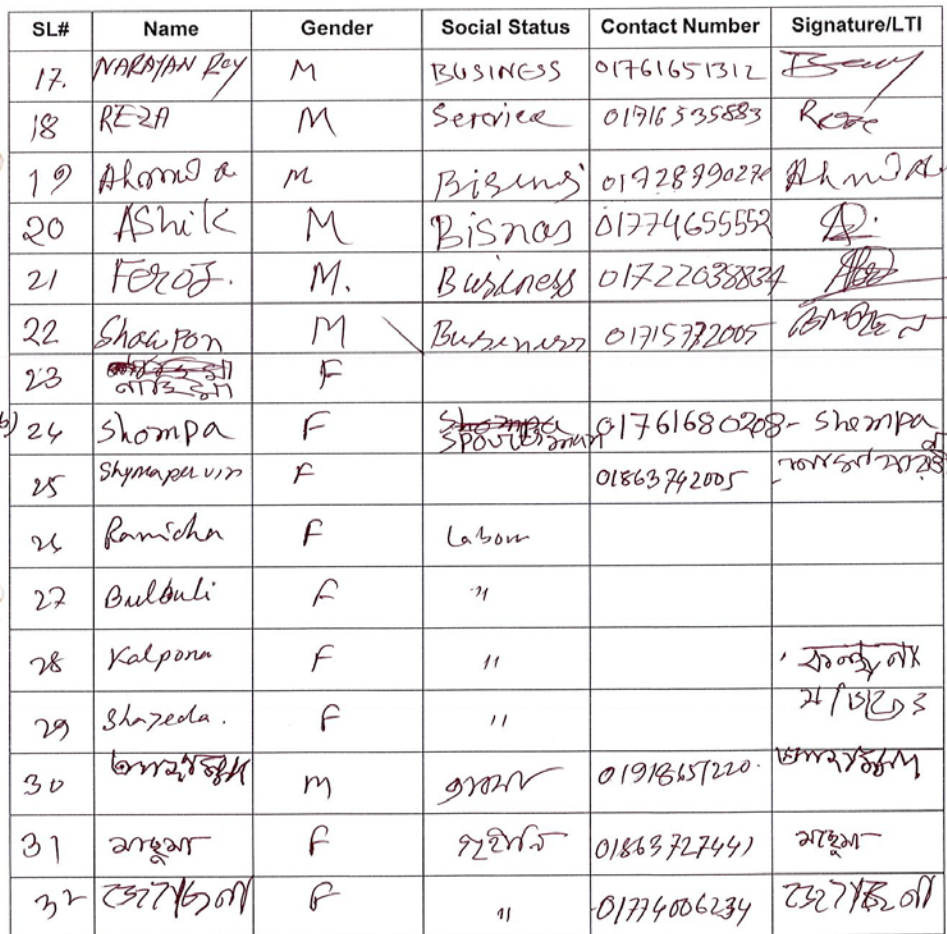 SL# Name Gender Social Status Contact Number Signature/LTI
17. NARAYAN ROY M BUSINESS 01761651312
18 REZA M Service 01716535883 Reza
19 Ahmed a M Bisens 01728990270
20 AShik M Bisnas 01774655552
21 FEROJ. M. Business 01722038834
22 Shawpon M Business 01715772005
23 F
24 Shompa F 01761680208- Shompa
25 Shymapervin F 01863742005
26 Ramicha F Labour
27 Bulbuli F "
28 Kalpona F " কল্পনা
29 Shazeda. F "
30 M 01918651220.
31 মাছুমা F গৃহীনি 01863727441 মাছুমা
32 F " 01774006234